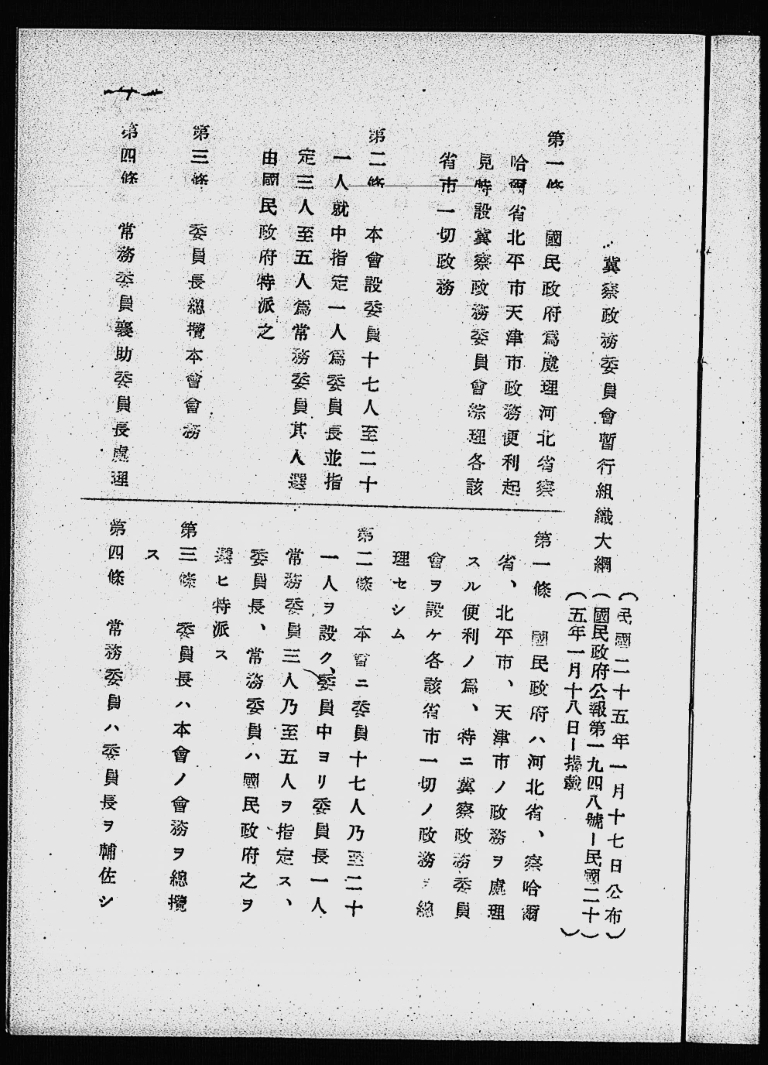 冀察政務委員會暫行組織大綱
(民國二十五年一月十七日公布)
(國民政府公報第一九四八號ー民國二十)
(五年一月十八日ー揭載)
第一條 國民政府爲處理河北省察
哈爾省北平市天津市政務便利起
見特設冀察政務委員會綜理各該
省市一切政務
第二條 本會設委員十七人至二十
一人就中指定一人爲委員長並指
定三人至五人爲常務委員其人選
由國民政府特派之
第三條 委員長總攬本會會務
第四條 常務委員襄助委員長處理
第一條 國民政府ハ河北省、察哈爾
省、北平市、天津市ノ政務ヲ處理
スル便利ノ爲、特ニ冀察政務委員
會ヲ設ケ各該省市一切ノ政務ヲ總
理セシム
第二條 本會ニ委員十七人乃至二十
一人ヲ設ク、委員中ヨリ委員長一人
常務委員三人乃至五人ヲ指定ス、
委員長、常務委員ハ國民政府之ヲ
選ヒ特派ス
第三條 委員長ハ本會ノ會務ヲ總攬
ス
第四條 常務委員ハ委員長ヲ輔佐シ